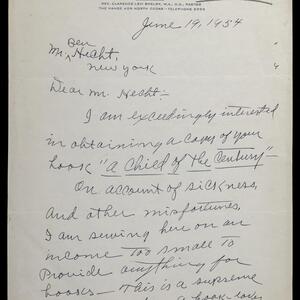 REV. CLARENCE LEVI SHELBY, M.A., D.D., PASTOR
June 19, 1954
Ben
Mr. Hecht,
New York
Dear Mr. Hecht:-
I am exceedingly interested
in obtaining a copy of your
book "A Child of the Century" -
On account of sickness,
And other misfortunes,
I am serving here on an
income too small to
Provide anything for
books - This is a supreme